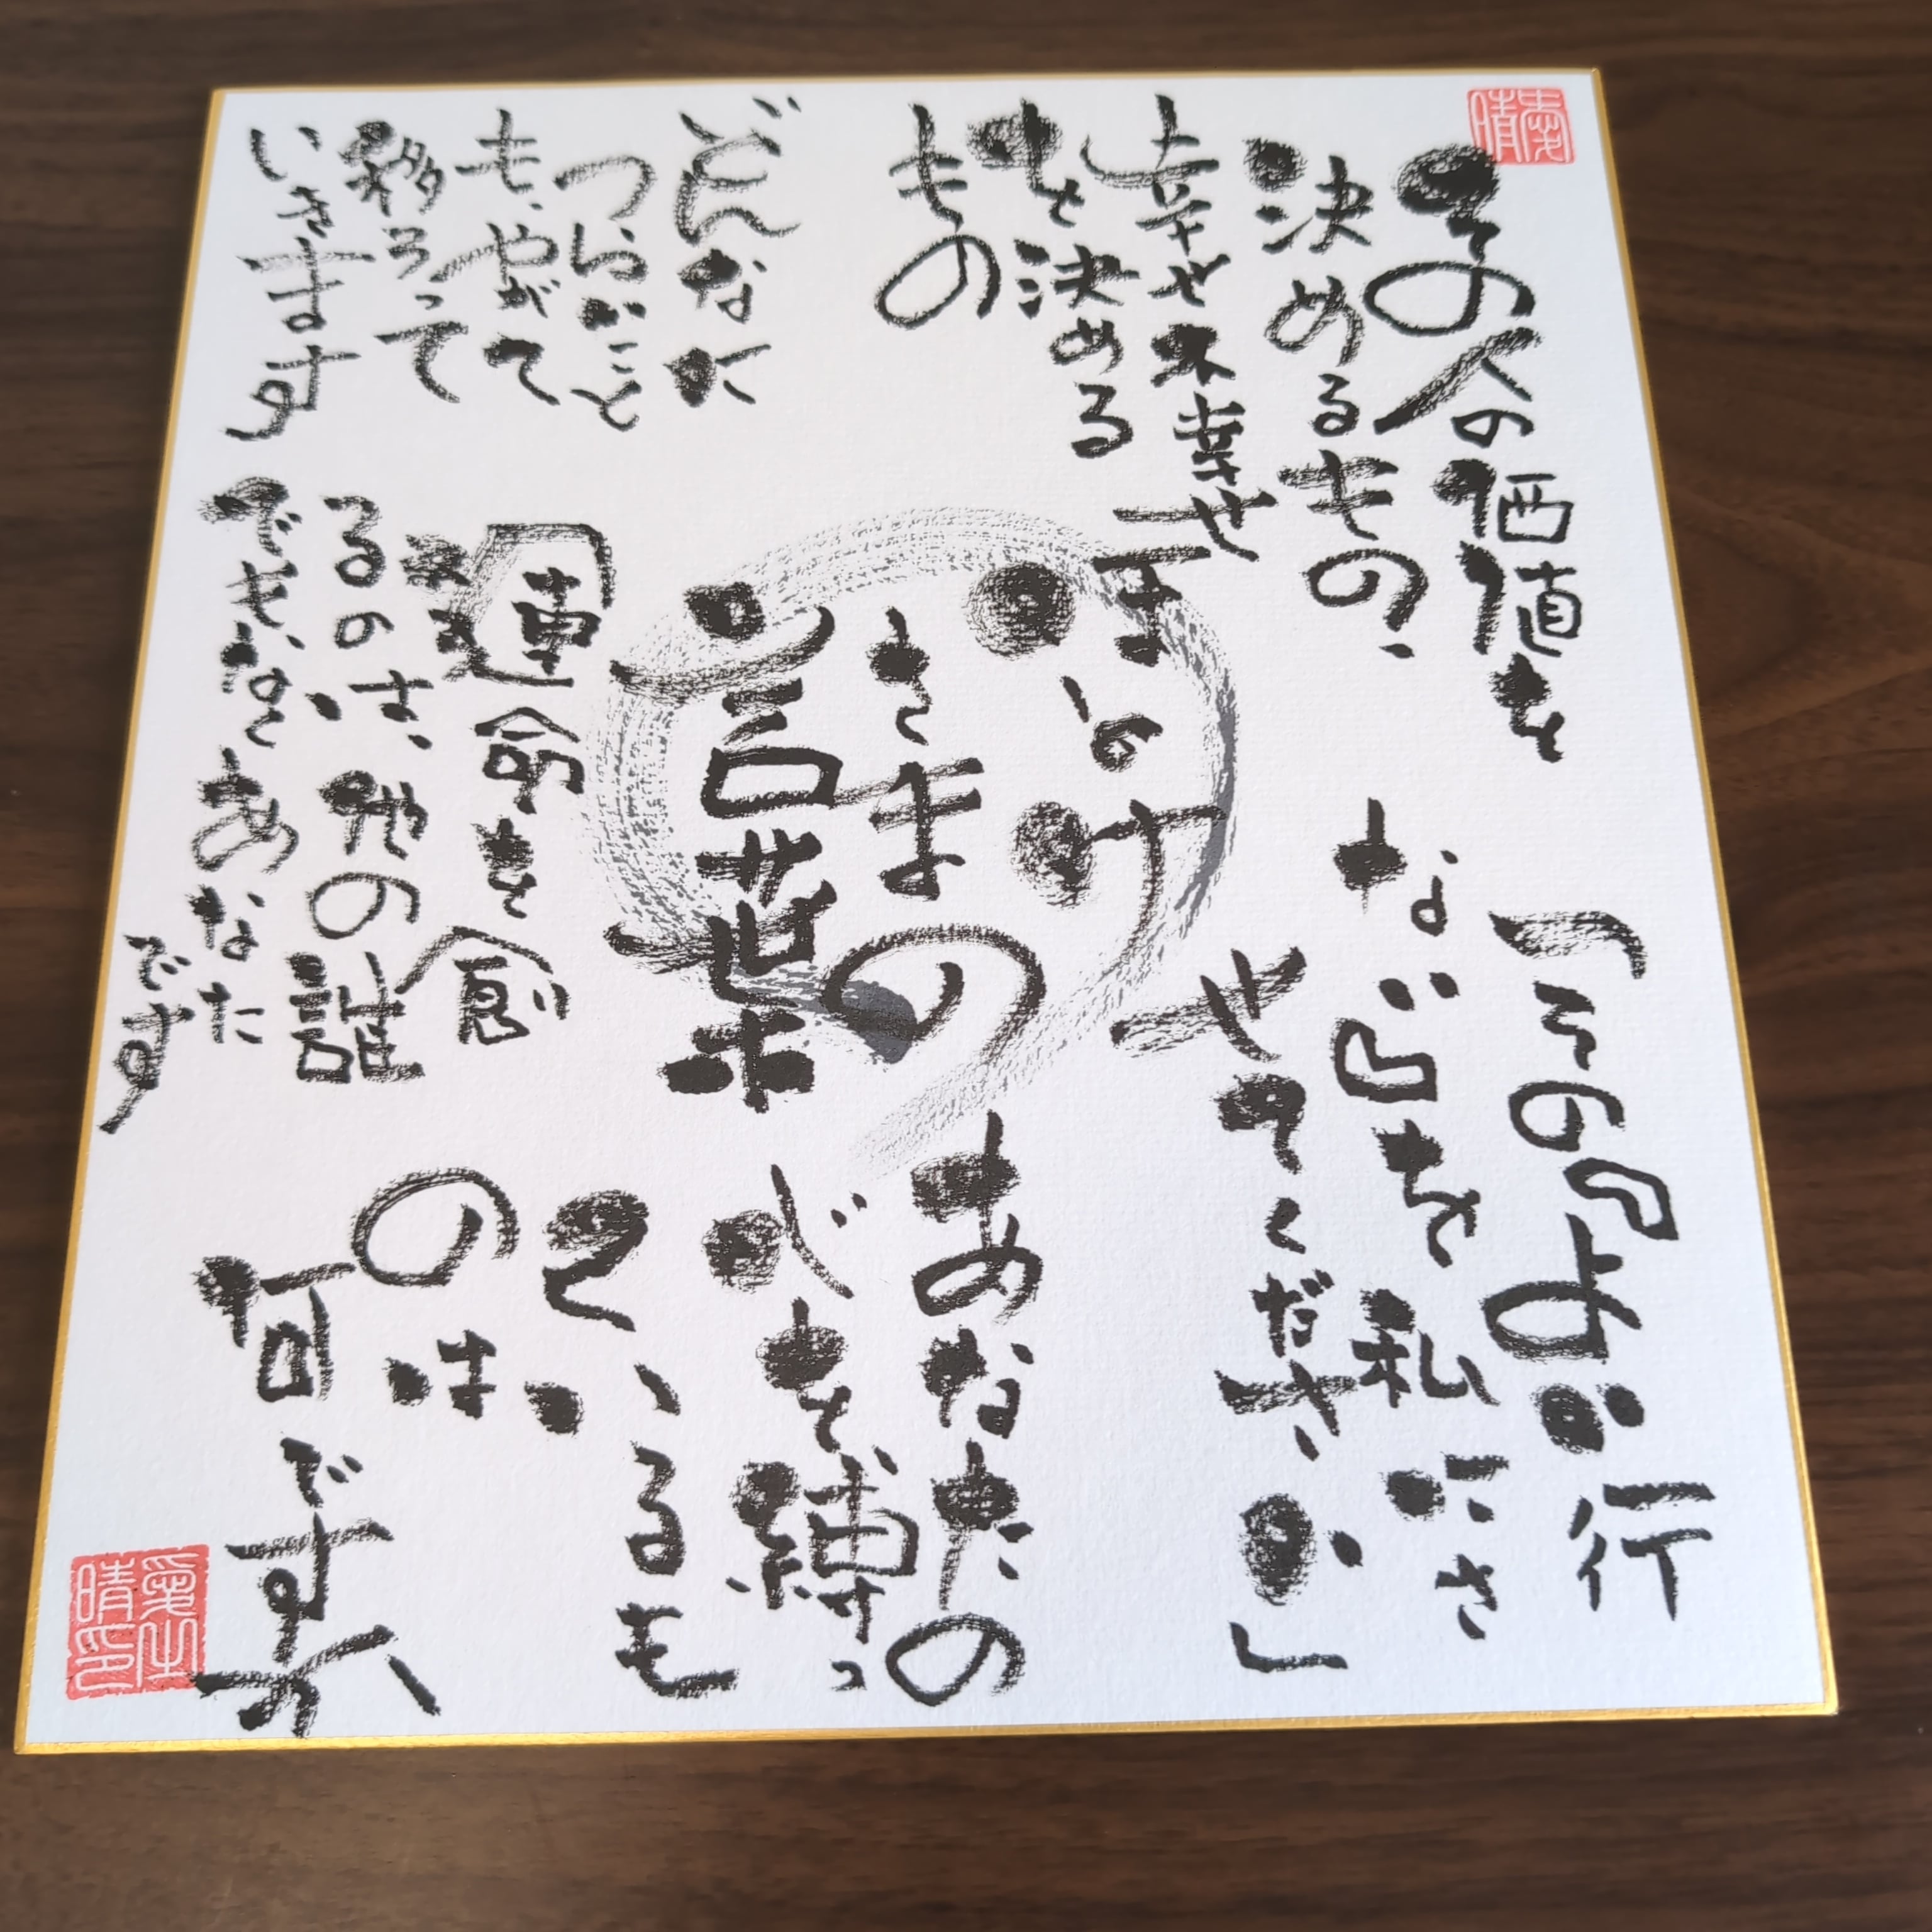 その人の価値を
決めるもの、
幸せ不幸せ
を決める
もの
行
を私にさ
せてください」
ほとけ
さまの
言葉
どんなに
つらいこと
も、やがて
移ろって
いきます
運命を創
るのは、他の誰
でもなくあなた
です
あなたの
心を縛っ
ているも
のは
何ですか